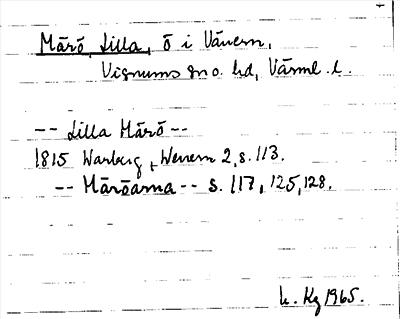 Märö, Lilla, ö i Vänern,
Visnums sn o. hd, Värml. l.
-- Lilla Märö --
1815 Warberg, Wenern 2, s. 113.
-- Märöarna -- s. 117, 125, 128.
Kg 1965.